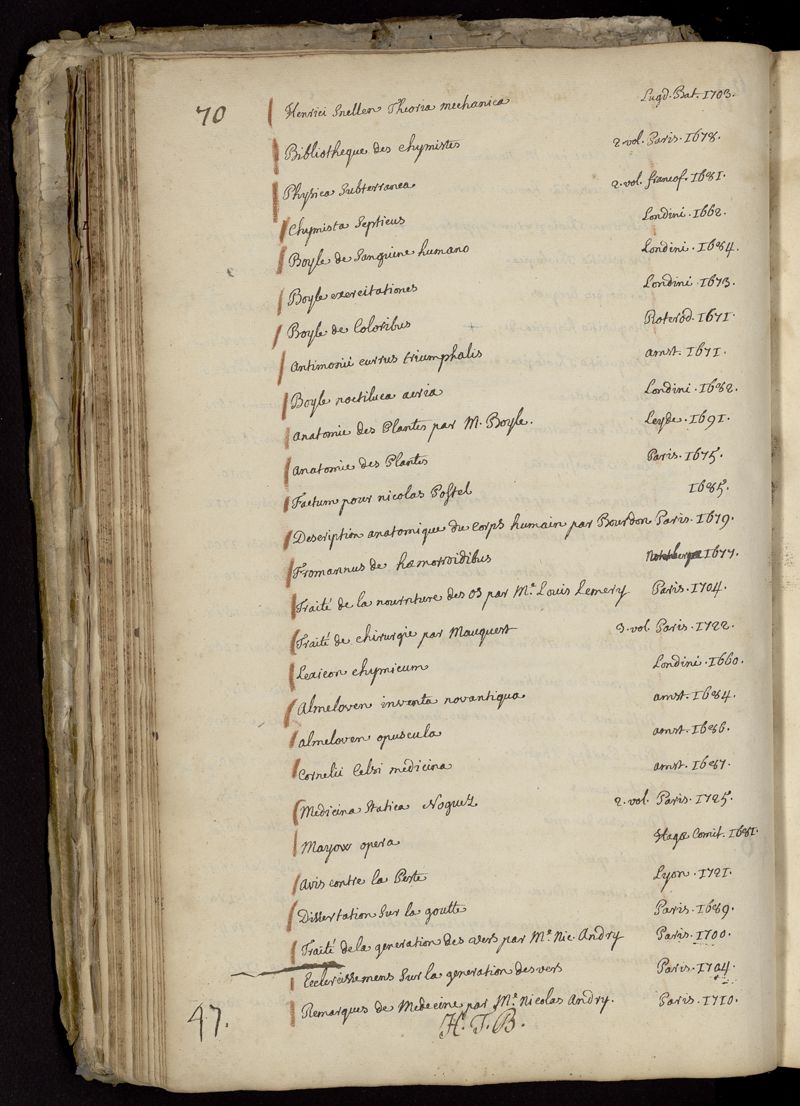 70
Henrici Snellen Theoria mechanica Lugd. Bat. 1703.
Bibliotheque des chymistes 2. vol. Paris. 1678.
Physica Subterranea 2. vol. francof. 1681.
Chymista Septicus Londini. 1662.
Boyle de Sanguine humano Londini. 1684.
Boyle exercitationes Londini. 1673.
Boyle de Coloribus Roterod. 1671.
Antimonii currus triumphalis amst. 1671.
Boyle noctiluca aeria Londini. 1682.
anatomie des Plantes par M. Boyle. Leyde. 1691.
anatomie des Plantes Paris. 1675.
Factum pour nicolas Postel 1685.
Description anatomique du corps humain par Bourdon Paris. 1679.
Fromannus de hæmorroidibus 1677.
Traité de la nourriture des os par Mr. Louis Lemery Paris. 1704.
Traité de chirurgie par Mauquest 3. vol. Paris. 1722.
Lexicon chymicum Londini. 1660.
Almeloven inventa novantiqua amst. 1684.
almeloven opuscula amst. 1686.
Cornelii Celsi medicina amst. 1687.
Medicina Statica Noguez 2. vol. Paris. 1725.
Mayow opera Hagæ Comit. 1681.
Avis contre la Peste Lyon. 1721.
Dissertation Sur la goutte Paris. 1689.
Traité de la generation des vers par Mr. Nic. Andry Paris. 1700.
Ecclercissemens Sur la generation des vers Paris. 1704.
Remarques de Medecine par Mr. Nicolas Andry. Paris. 1710.
47. H. T. B.